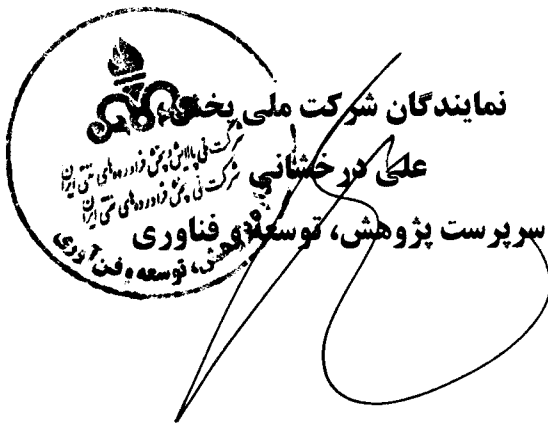 نمایندگان شرکت ملی پخش
علی درخشانی
سرپرست پژوهش، توسعه و فناوری
شرکت ملی پالایش و پخش فرآورده‌های نفتی ایران
شرکت ملی پخش فرآورده‌های نفتی ایران
پژوهش، توسعه و فن آوری